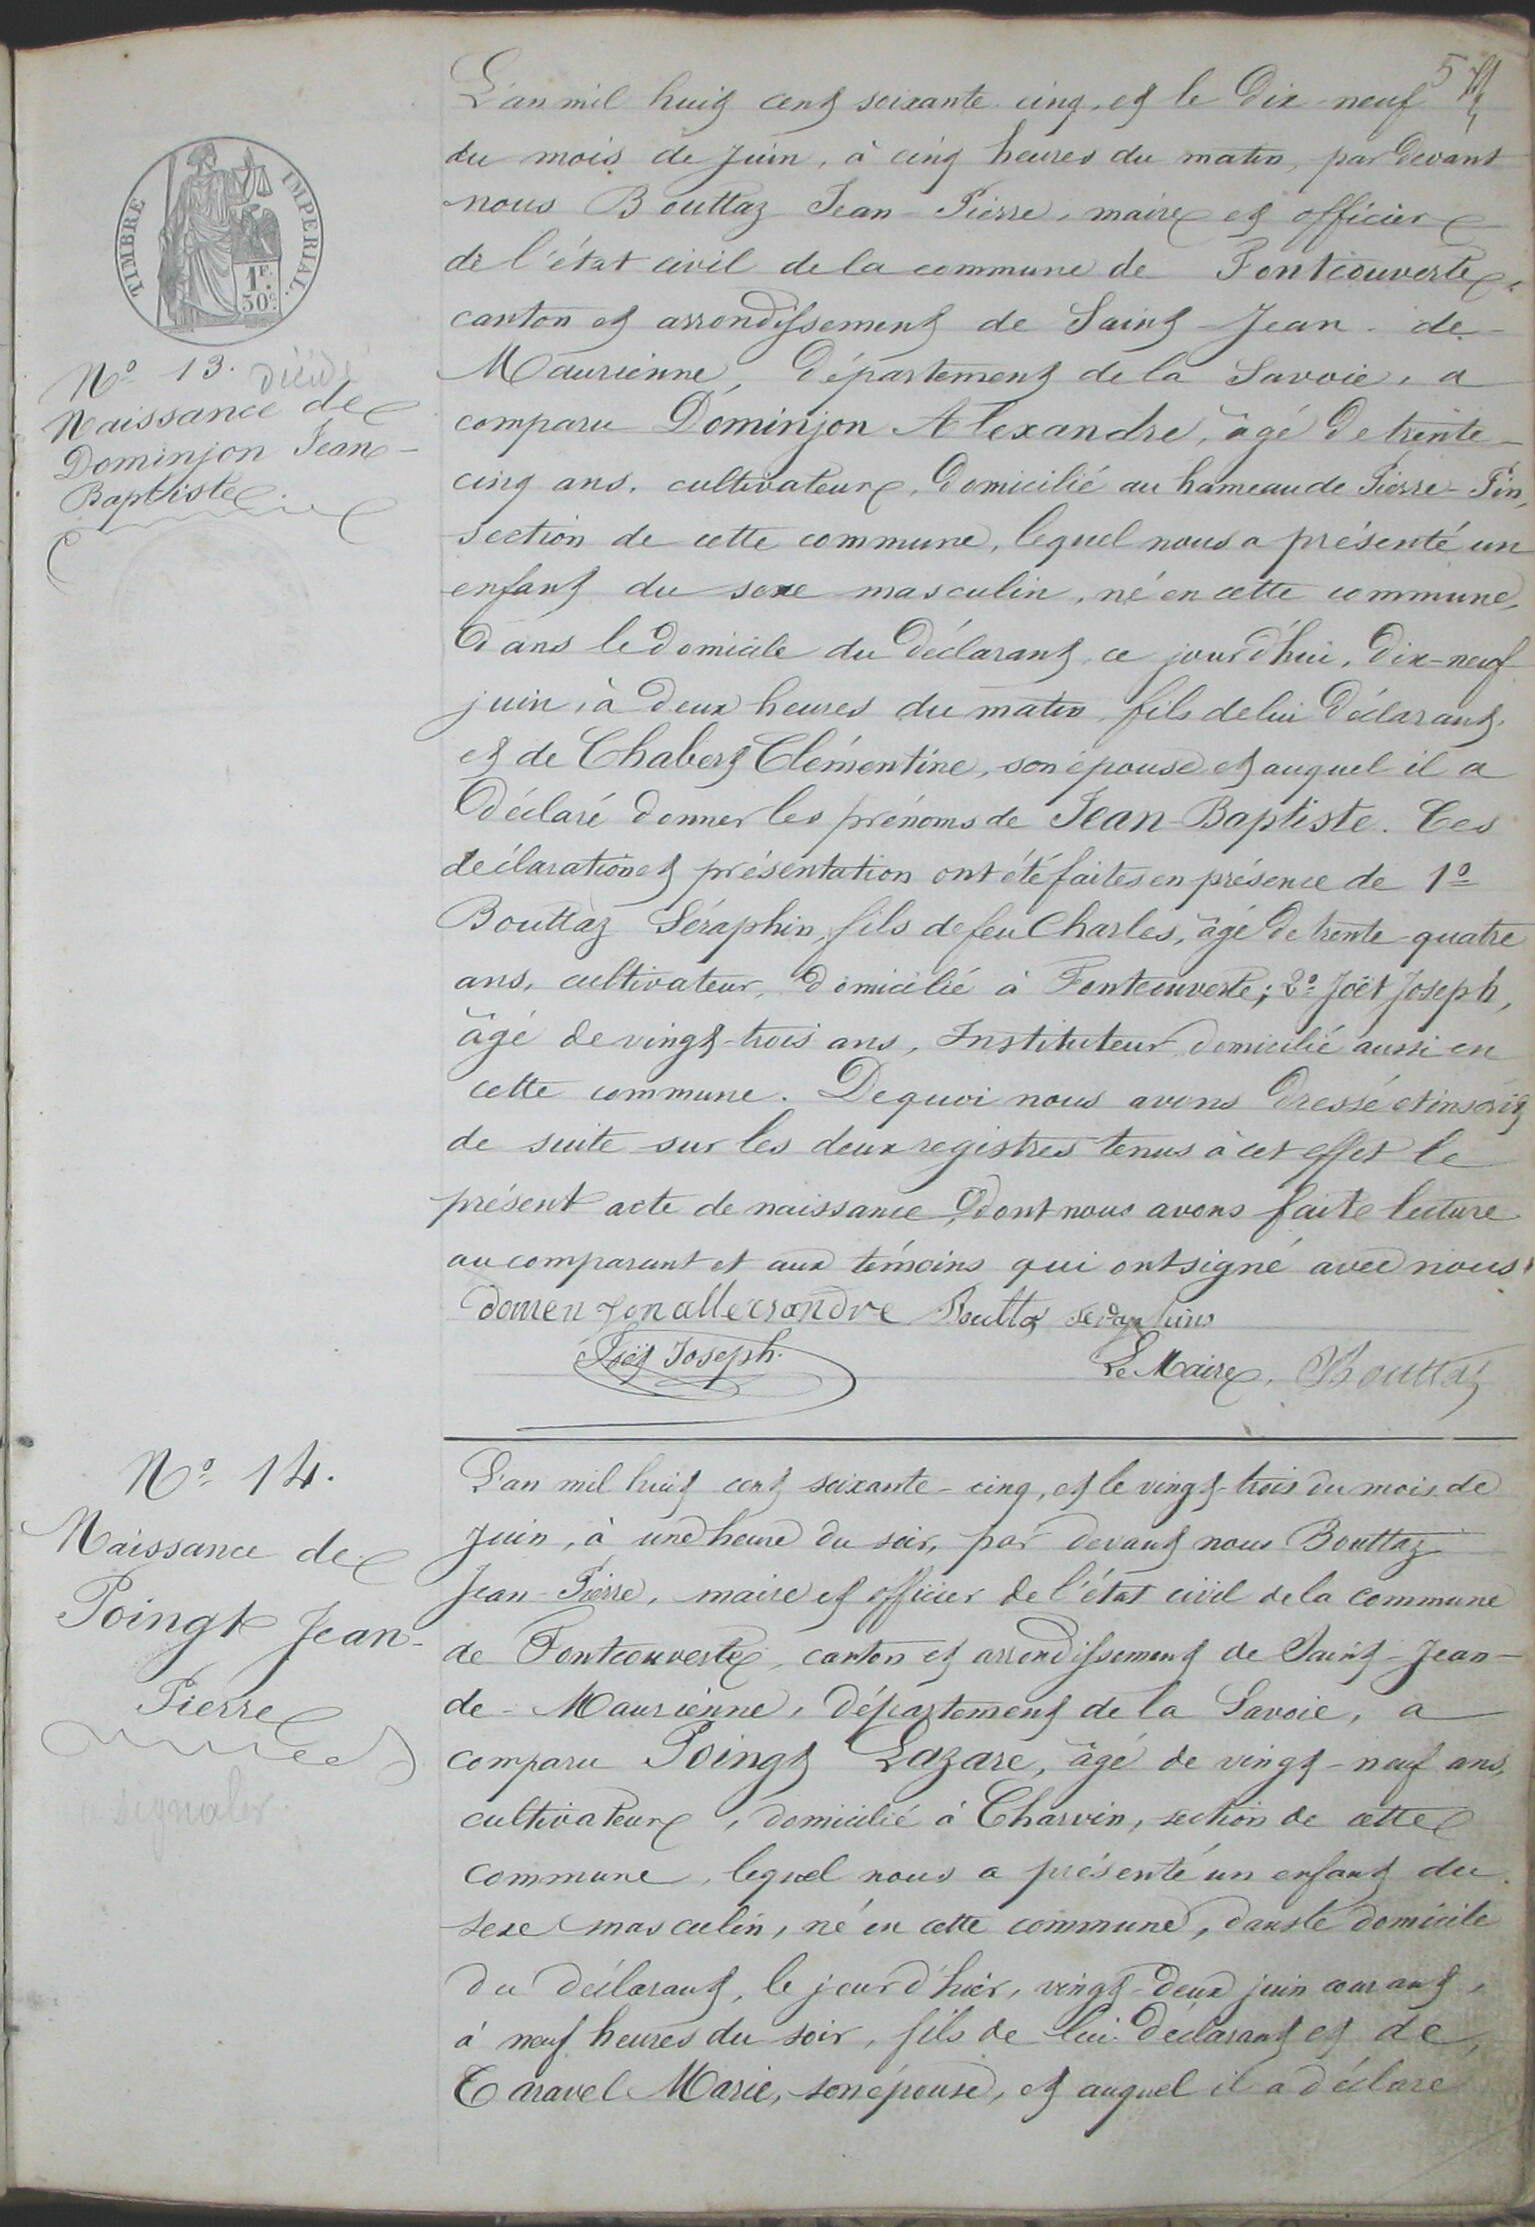 5
L'an mil huit cent soixante-cinq, et le dix-neuf
du mois de Juin, à cinq heures du matin, par devant
nous Bouttaz Jean-Pierre, maire et officier
de l'état civil de la commune de Fontcouverte,
canton et arrondissement de Saint-Jean-de-
Maurienne, département de la Savoie, a
comparu Dominjon Alexandre, âgé de trente-
cinq ans, cultivateur, domicilié au hameau de Pierre-Pin,
section de cette commune, lequel nous a présenté un
enfant du sexe masculin, né en cette commune,
dans le domicile du déclarant, ce jourd'hui, dix-neuf
juin, à deux heures du matin, fils de lui déclarant
et de Chabert Clémentine, son épouse et auquel il a
déclaré donner les prénoms de Jean-Baptiste. Ces
déclaration et présentation ont été faites en présence de 1º
Bouttaz Séraphin, fils de feu Charles, âgé de trente-quatre
ans, cultivateur, domicilié à Fontcouverte; 2º Joët Joseph,
âgé de vingt-trois ans, Instituteur domicilié aussi en
cette commune. De quoi nous avons dressé et inscrit
de suite sur les deux registres tenus à cet effet le
présent acte de naissance, dont nous avons faite lecture
au comparant et aux témoins qui ont signé avec nous.
Bouttaz
Joët Joseph.
Le Maire, Bouttaz
TIMBRE IMPERIAL.
1F.
50c
Nº 13.
Naissance de
Dominjon Jean-
Baptiste.
Nº 14.
Naissance de
Poingt Jean-
Pierre
signaler
L'an mil huit cent soixante-cinq, et le vingt-trois du mois de
Juin, à une heure du soir, par devant nous Bouttaz
Jean-Pierre, maire et officier de l'état civil de la commune
de Fontcouverte, canton et arrondissement de Saint-Jean-
de-Maurienne, département de la Savoie, a
comparu Poingt Lazare, âgé de vingt-neuf ans,
cultivateur, domicilié à Charvin, section de cette
commune, lequel nous a présenté un enfant du
sexe masculin, né en cette commune, dans le domicile
du déclarant, le jour d'hier, vingt-deux juin courant,
à neuf heures du soir, fils de lui déclarant et de
Taravel Marie, son épouse, et auquel il a déclaré